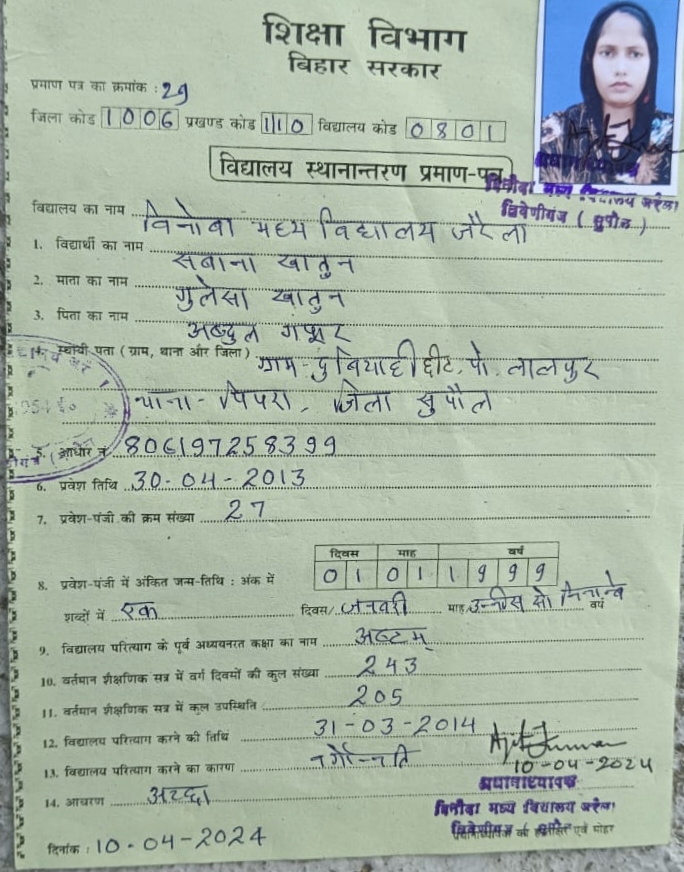 शिक्षा विभाग
बिहार सरकार
प्रमाण पत्र का क्रमांक : 29
जिला कोड 1006 प्रखण्ड कोड 110 विद्यालय कोड 0801
विद्यालय स्थानान्तरण प्रमाण-पत्र
प्रधानाध्यापक
मध्य विद्यालय
त्रिवेणीगंज ( सुपौल )
विद्यालय का नाम विनोबा मध्य विद्यालय जरैला
1. विद्यार्थी का नाम सबाना खातुन
2. माता का नाम गुलेसा खातुन
3. पिता का नाम अब्दुल गफ्फार
4. स्थायी पता (ग्राम, थाना और जिला) ग्राम- दुबियाही डीट. पो. लालपुर
थाना- पिपरा, जिला सुपौल
5. आधार नं 806197258399
6. प्रवेश तिथि 30-04-2013
7. प्रवेश-पंजी की क्रम संख्या 27
दिवस माह वर्ष
8. प्रवेश-पंजी में अंकित जन्म-तिथि : अंक में 01 01 1999
शब्दों में एक दिवस/ जनवरी माह/ उन्नीस सौ निनानवे वर्ष
9. विद्यालय परित्याग के पूर्व अध्ययनरत कक्षा का नाम अष्टम्
10. वर्तमान शैक्षणिक सत्र में वर्ग दिवसों की कुल संख्या 243
11. वर्तमान शैक्षणिक सत्र में कुल उपस्थिति 205
12. विद्यालय परित्याग करने की तिथि 31-03-2014
13. विद्यालय परित्याग करने का कारण वर्गोन्नति
14. आचरण अच्छा
Ajit Kumar
10-04-2024
प्रधानाध्यापक
मध्य विद्यालय
त्रिवेणीगंज
एवं मोहर
दिनांक : 10-04-2024